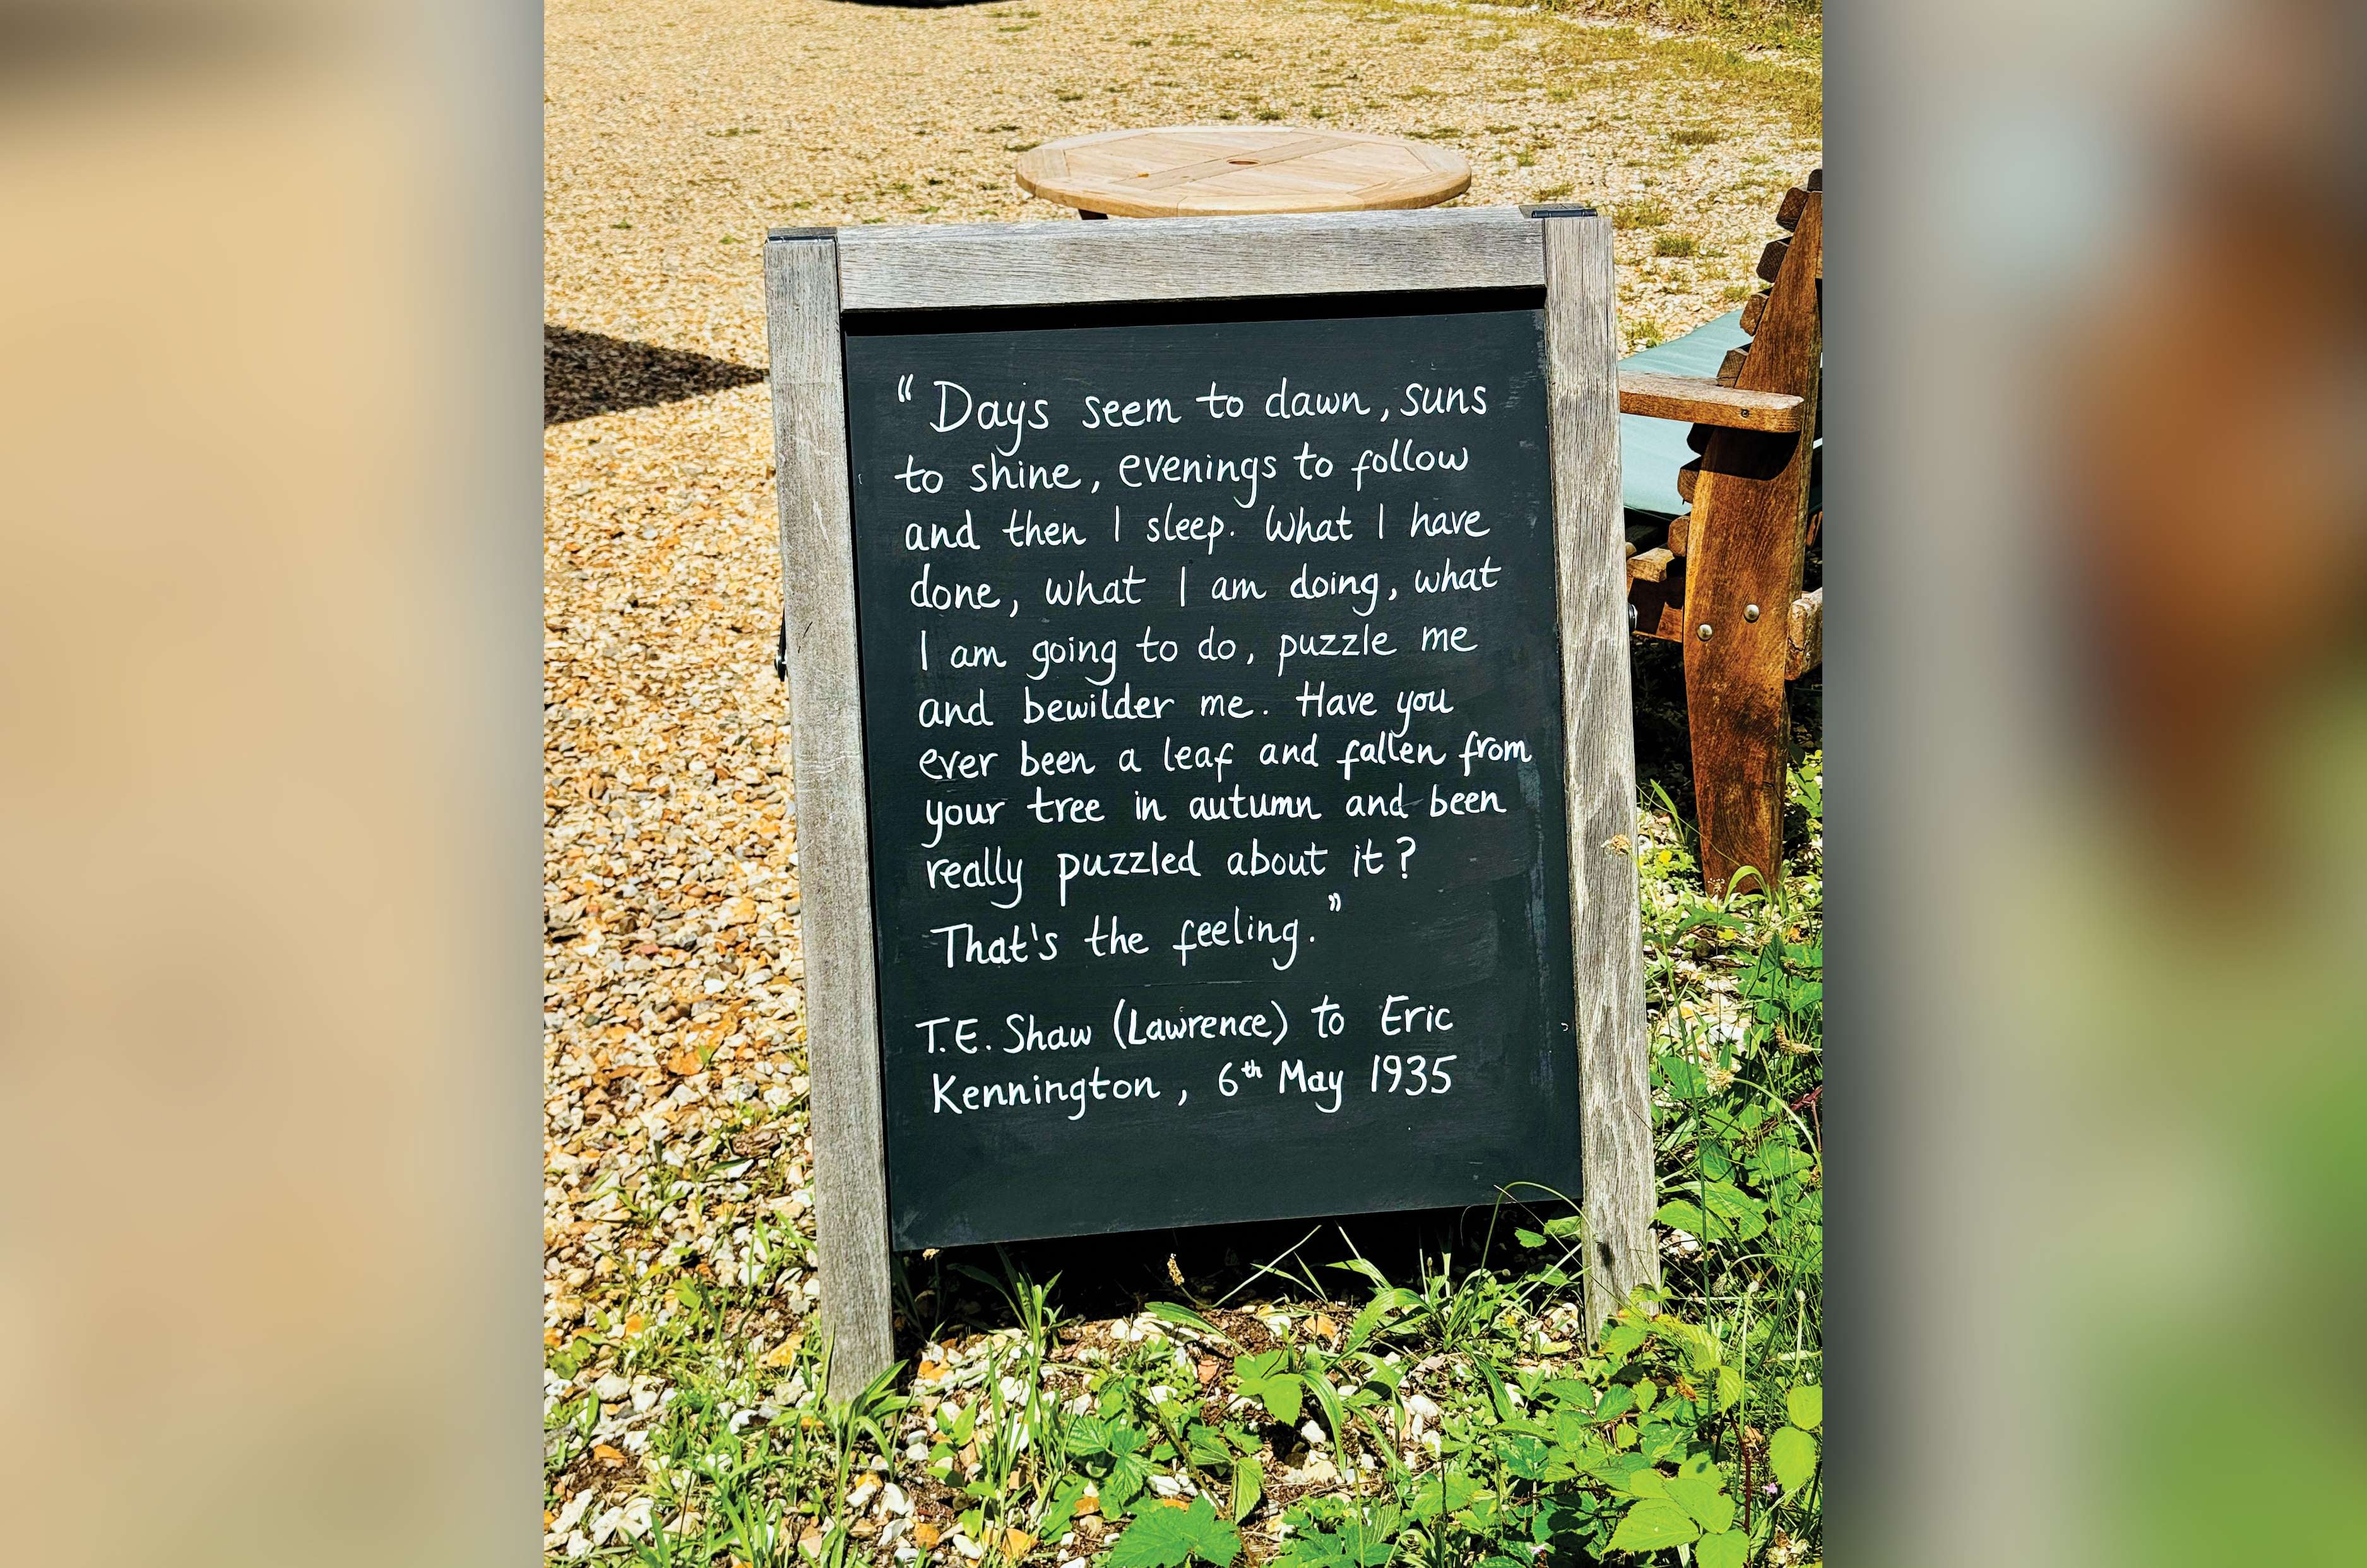 “ Days seem to dawn, suns
to shine, evenings to follow
and then I sleep. What I have
done, what I am doing, what
I am going to do, puzzle me
and bewilder me. Have you
ever been a leaf and fallen from
your tree in autumn and been
really puzzled about it?
That's the feeling.”
T.E. Shaw (Lawrence) to Eric
Kennington, 6th May 1935